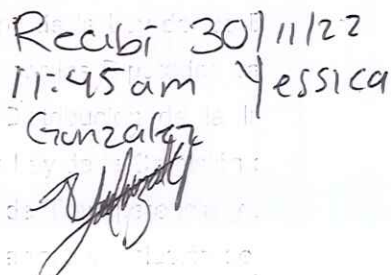 Recibí 30/11/22
11:45am Yessica
Gonzalez